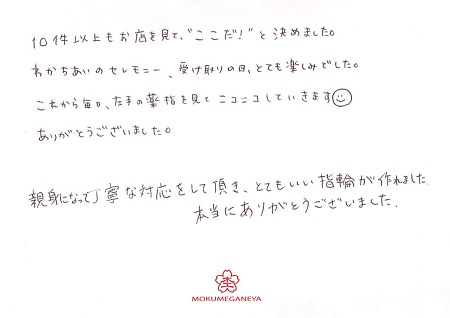 10件以上もお店を見て、"ここだ!"と決めました。
わかちあいのセレモニー、受け取りの日、とても楽しみでした。
これから毎日、左手の薬指を見てニコニコしていきます☺
ありがとうございました。
親身になって丁寧な対応をして頂き、とてもいい指輪が作れました。
本当にありがとうございました。
MOKUMEGANEYA